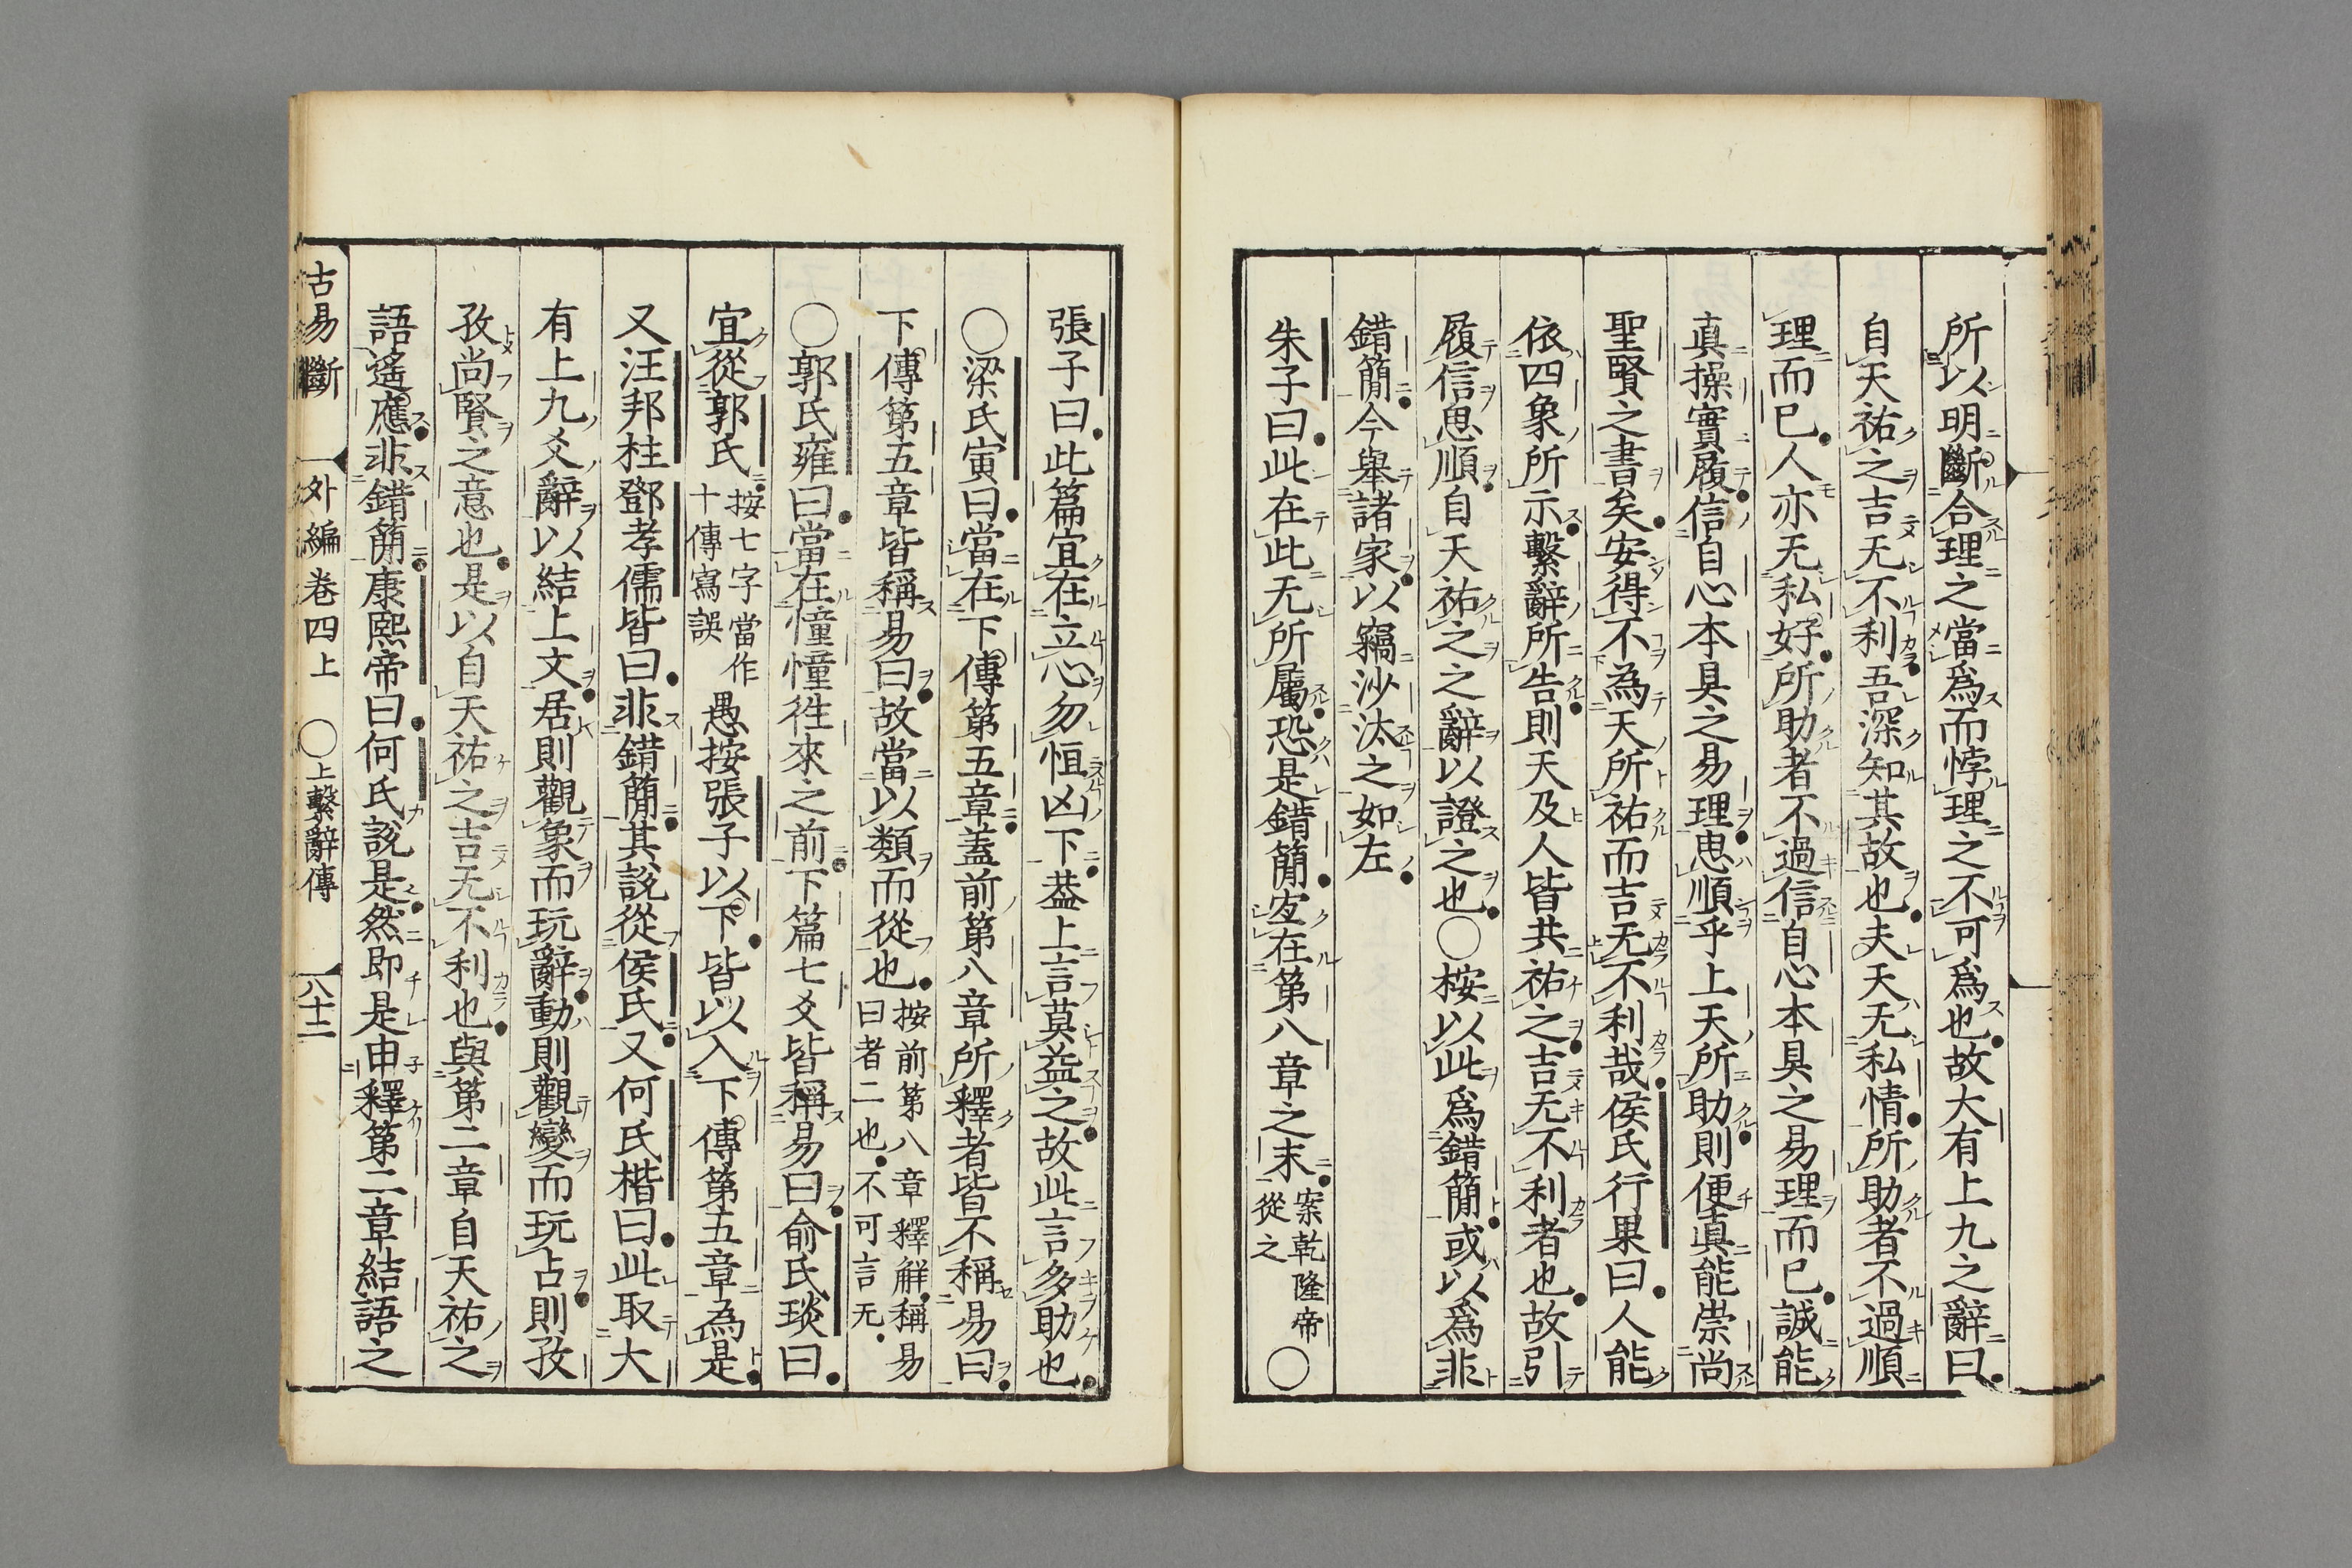 所以明斷合理之當爲而悖理之不可爲也故大有上九之辭曰
自天祐之吉无不利吾深知其故也夫天无私情所助者不過順
理而已人亦无私好所助者不過信自心本具之易理而已誠能
真操實履信自心本具之易理思順乎上天所助則便真能崇尚
聖賢之書矣安得不為天所祐而吉无不利哉侯氏行果曰人能
依四象所示繫辭所告則天及人皆共祐之吉无不利者也故引
履信思順自天祐之之辭以證之也○桉以此爲錯簡或以爲非
錯簡今舉諸家以竊沙汰之如左
朱子曰此在此无所屬恐是錯簡宜在第八章之末案乾隆帝從之○
張子曰此篇宜在立心勿恒凶下葢上言莫益之故此言多助也
○梁氏寅曰當在下傳第五章蓋前第八章所釋者皆不稱易曰
下傳第五章皆稱易曰故當以類而從也按前第八章釋解稱易曰者二也不可言无
○郭氏雍曰當在憧憧往來之前下篇七爻皆稱易曰俞氏琰曰
宜從郭氏按七字當作十傳寫誤愚按張子以下皆以入下傳第五章為是
又汪邦柱鄧孝儒皆曰非錯簡其說從侯氏又何氏楷曰此取大
有上九爻辭以結上文居則觀象而玩辭動則觀變而玩占則孜
孜尚賢之意也是以自天祐之吉无不利也與第二章自天祐之
語遙應非錯簡康熙帝曰何氏說是然即是申釋第二章結語之
古易斷 外編卷四上 ○上繫辭傳 八十二